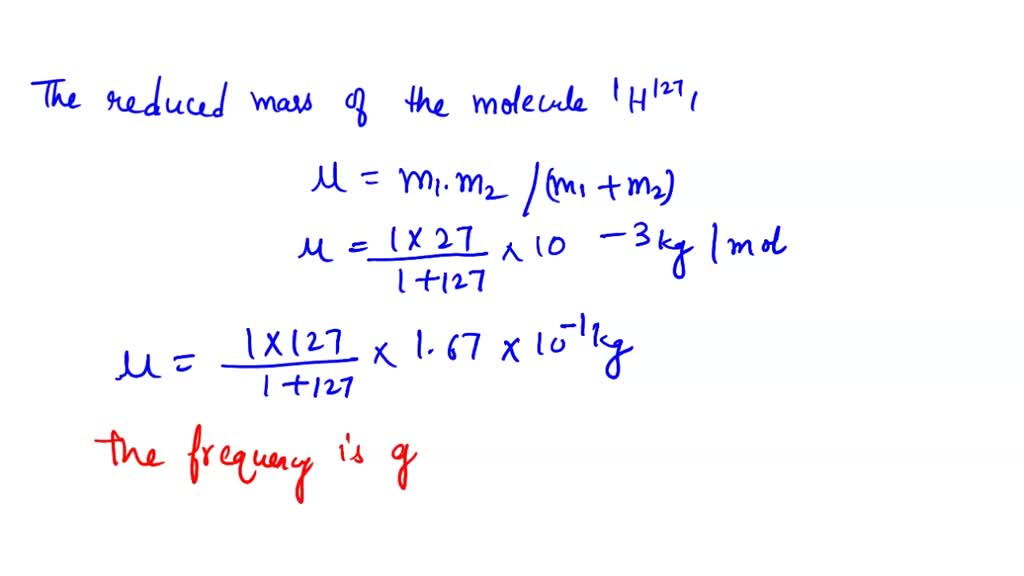 The reduced mass of the molecule ¹H¹²⁷I
μ = m₁.m₂ /(m₁ + m₂)
μ = 1 × 27 / 1 + 127 × 10 - 3 kg / mol
μ = 1 × 127 / 1 + 127 × 1.67 × 10⁻¹ kg
the frequency is g